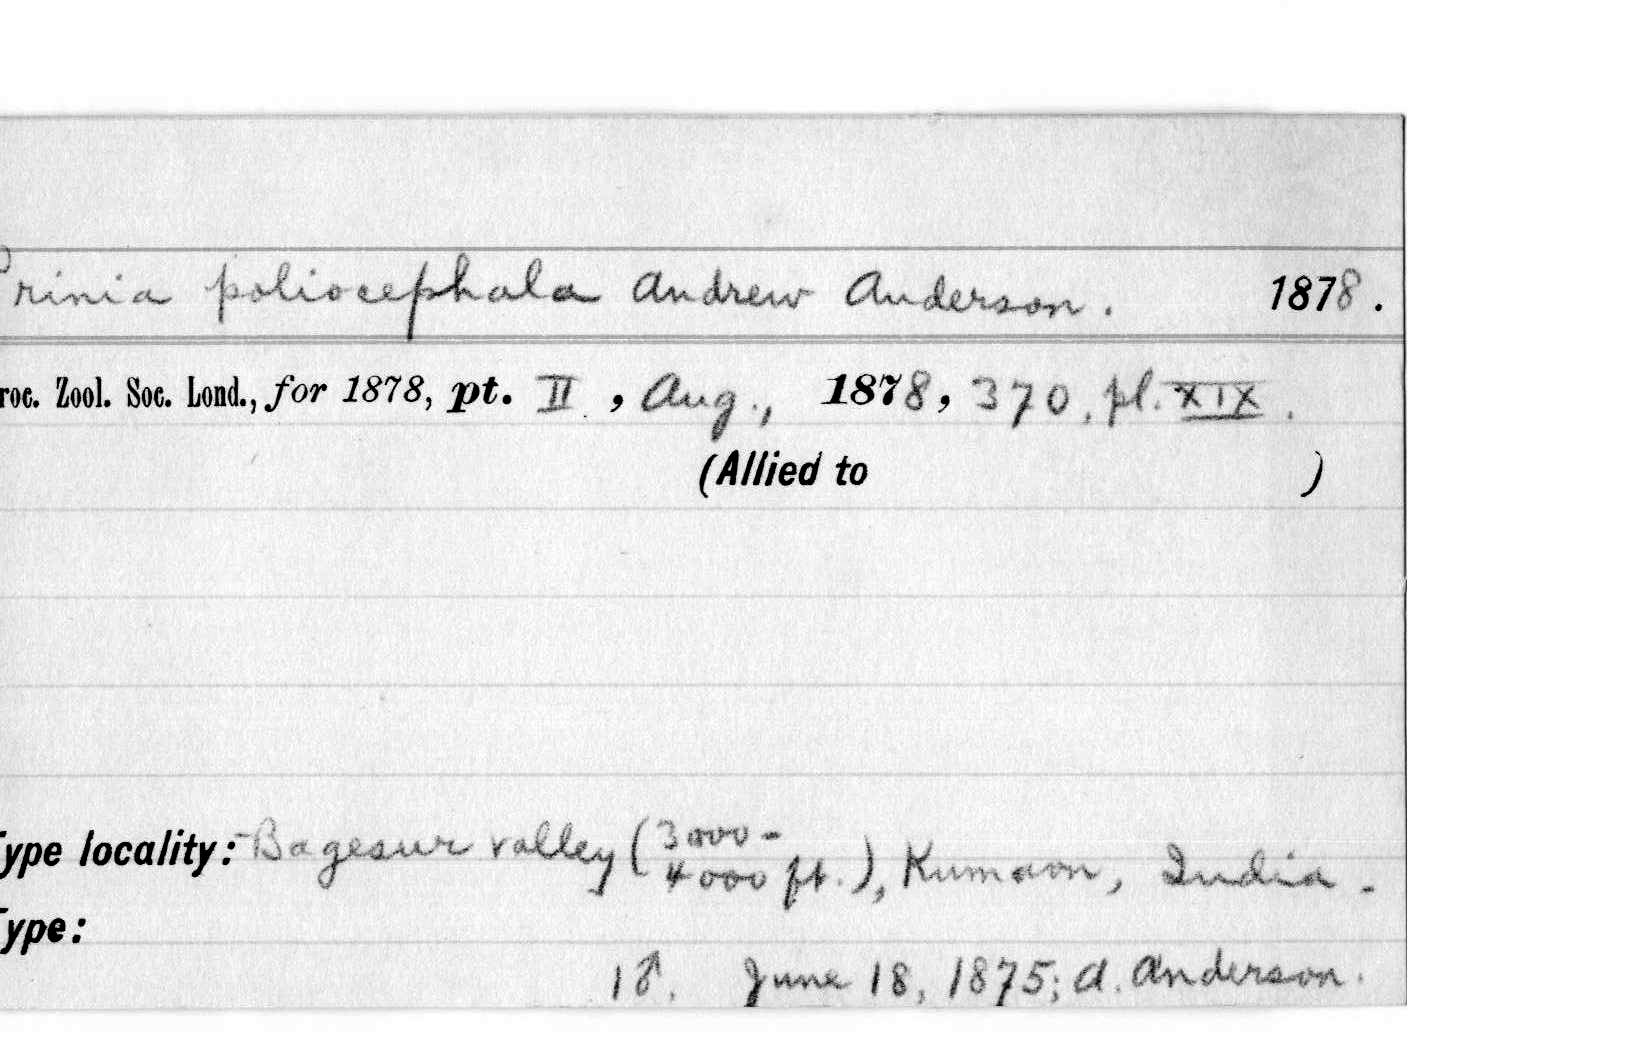 Prinia poliocephala Andrew Anderson. 1878.
roc. Zool. Soc. Lond., for 1878, pt. II, Aug., 1878, 370, pl. XIX.
(Allied to )
Type locality: Bagesur valley (3000-4000 ft.), Kumaon, India.
Type:
1♂. June 18, 1875; A. Anderson.